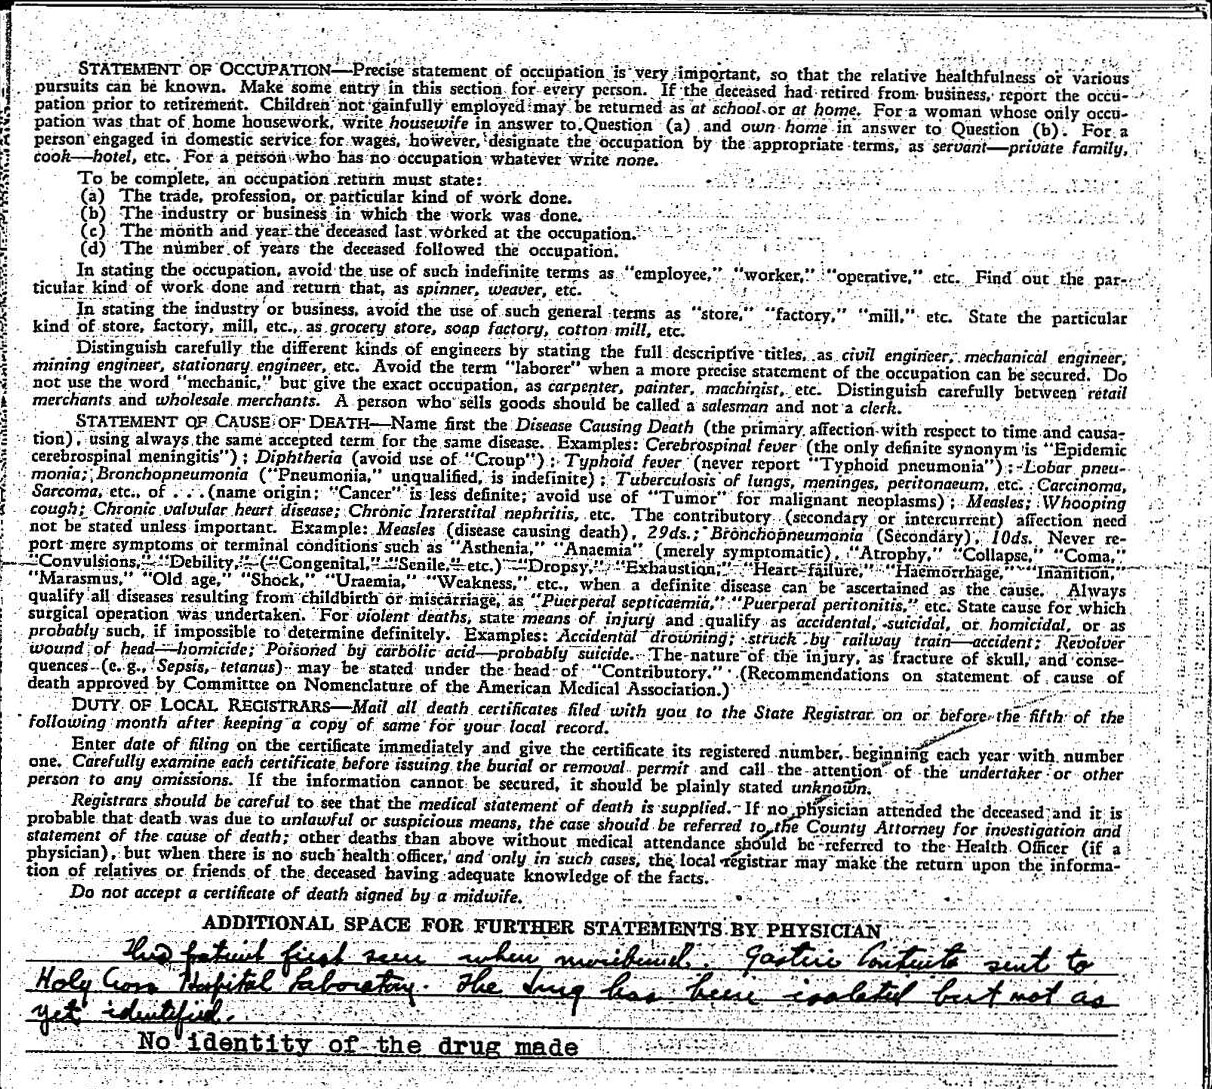 STATEMENT OF OCCUPATION—Precise statement of occupation is very important, so that the relative healthfulness of various
pursuits can be known. Make some entry in this section for every person. If the deceased had retired from business, report the occu-
pation prior to retirement. Children not gainfully employed may be returned as at school or at home. For a woman whose only occu-
pation was that of home housework, write housewife in answer to Question (a) and own home in answer to Question (b). For a
person engaged in domestic service for wages, however, designate the occupation by the appropriate terms, as servant—private family,
cook—hotel, etc. For a person who has no occupation whatever write none.
To be complete, an occupation return must state:
(a) The trade, profession, or particular kind of work done.
(b) The industry or business in which the work was done.
(c) The month and year the deceased last worked at the occupation.
(d) The number of years the deceased followed the occupation.
In stating the occupation, avoid the use of such indefinite terms as "employee," "worker," "operative," etc. Find out the par-
ticular kind of work done and return that, as spinner, weaver, etc.
In stating the industry or business, avoid the use of such general terms as "store," "factory," "mill," etc. State the particular
kind of store, factory, mill, etc., as grocery store, soap factory, cotton mill, etc.
Distinguish carefully the different kinds of engineers by stating the full descriptive titles, as civil engineer, mechanical engineer,
mining engineer, stationary engineer, etc. Avoid the term "laborer" when a more precise statement of the occupation can be secured. Do
not use the word "mechanic," but give the exact occupation, as carpenter, painter, machinist, etc. Distinguish carefully between retail
merchants and wholesale merchants. A person who sells goods should be called a salesman and not a clerk.
STATEMENT OF CAUSE OF DEATH—Name first the Disease Causing Death (the primary affection with respect to time and causa-
tion), using always the same accepted term for the same disease. Examples: Cerebrospinal fever (the only definite synonym is "Epidemic
cerebrospinal meningitis"); Diphtheria (avoid use of "Croup"); Typhoid fever (never report "Typhoid pneumonia"); Lobar pneu-
monia; Bronchopneumonia ("Pneumonia," unqualified, is indefinite); Tuberculosis of lungs, meninges, peritonaeum, etc. Carcinoma,
Sarcoma, etc., of . . . (name origin; "Cancer" is less definite; avoid use of "Tumor" for malignant neoplasms); Measles; Whooping
cough; Chronic valvular heart disease; Chronic Interstital nephritis, etc. The contributory (secondary or intercurrent) affection need
not be stated unless important. Example: Measles (disease causing death), 29ds.; Bronchopneumonia (Secondary), 10ds. Never re-
port mere symptoms or terminal conditions such as "Asthenia," "Anaemia" (merely symptomatic), "Atrophy," "Collapse," "Coma,"
"Convulsions," "Debility," ("Congenital," "Senile," etc.) "Dropsy," "Exhaustion," "Heart failure," "Haemorrhage," "Inanition,"
"Marasmus," "Old age," "Shock," "Uraemia," "Weakness," etc., when a definite disease can be ascertained as the cause. Always
qualify all diseases resulting from childbirth or miscarriage, as "Puerperal septicaemia," "Puerperal peritonitis," etc. State cause for which
surgical operation was undertaken. For violent deaths, state means of injury and qualify as accidental, suicidal, or homicidal, or as
probably such, if impossible to determine definitely. Examples: Accidental drowning; struck by railway train—accident; Revolver
wound of head—homicide; Poisoned by carbolic acid—probably suicide. The nature of the injury, as fracture of skull, and conse-
quences (e. g., Sepsis, tetanus) may be stated under the head of "Contributory." (Recommendations on statement of cause of
death approved by Committee on Nomenclature of the American Medical Association.)
DUTY OF LOCAL REGISTRARS—Mail all death certificates filed with you to the State Registrar on or before the fifth of the
following month after keeping a copy of same for your local record.
Enter date of filing on the certificate immediately and give the certificate its registered number, beginning each year with number
one. Carefully examine each certificate before issuing the burial or removal permit and call the attention of the undertaker or other
person to any omissions. If the information cannot be secured, it should be plainly stated unknown.
Registrars should be careful to see that the medical statement of death is supplied. If no physician attended the deceased and it is
probable that death was due to unlawful or suspicious means, the case should be referred to the County Attorney for investigation and
statement of the cause of death; other deaths than above without medical attendance should be referred to the Health Officer (if a
physician), but when there is no such health officer, and only in such cases, the local registrar may make the return upon the informa-
tion of relatives or friends of the deceased having adequate knowledge of the facts.
Do not accept a certificate of death signed by a midwife.
ADDITIONAL SPACE FOR FURTHER STATEMENTS BY PHYSICIAN
This patient first seen when moribund. Gastric Contents sent to
Holy Cross Hospital Laboratory. The drug has been isolated but not as
yet identified.
No identity of the drug made